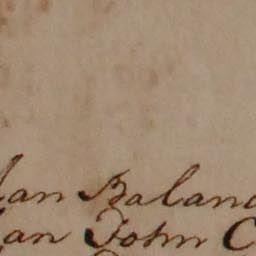 Jan Balan
Jan John C